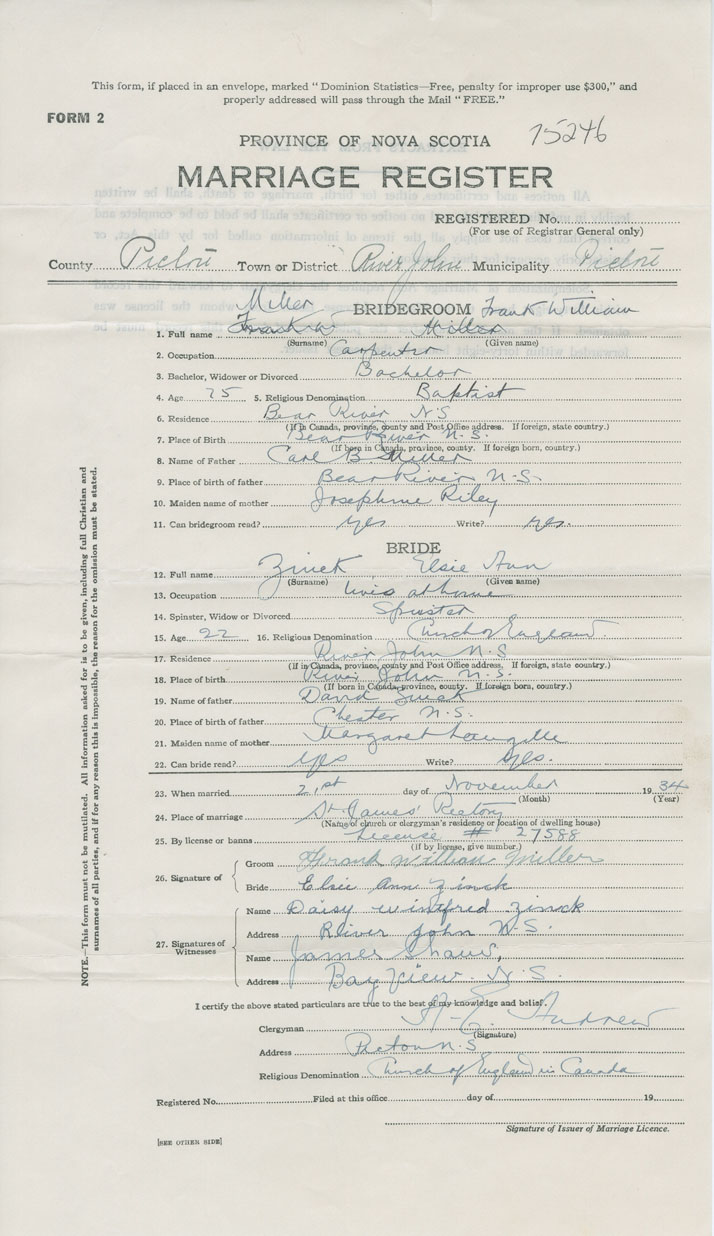 This form, if placed in an envelope, marked "Dominion Statistics—Free, penalty for improper use $300," and
properly addressed will pass through the Mail "FREE."
FORM 2
PROVINCE OF NOVA SCOTIA 15246
MARRIAGE REGISTER
REGISTERED No.
(For use of Registrar General only)
County Pictou Town or District River John Municipality Pictou
Miller BRIDEGROOM Frank William
1. Full name Frank W Miller
(Surname) (Given name)
2. Occupation Carpenter
3. Bachelor, Widower or Divorced Bachelor
4. Age 25 5. Religious Denomination Baptist
6. Residence Bear River N S
(If in Canada, province, county and Post Office address. If foreign, state country.)
7. Place of Birth Bear River N.S.
(If born in Canada, province, county. If foreign born, country.)
8. Name of Father Carl B. Miller
9. Place of birth of father Bear River N.S.
10. Maiden name of mother Josephine Riley
11. Can bridegroom read? yes Write? yes.
BRIDE
12. Full name Zinck Elsie Ann
(Surname) (Given name)
13. Occupation lives at home
14. Spinster, Widow or Divorced Spinster
15. Age 22 16. Religious Denomination Church of England
17. Residence River John N.S
(If in Canada, province, county and Post Office address. If foreign, state country.)
18. Place of birth River John N.S.
(If born in Canada, province, county. If foreign born, country.)
19. Name of father David Zinck
20. Place of birth of father Chester N.S.
21. Maiden name of mother Margaret Langille
22. Can bride read? yes Write? yes.
23. When married 21st day of November 1934
(Month) (Year)
24. Place of marriage St. James' Rectory
(Name of church or clergyman's residence or location of dwelling house)
25. By license or banns License # 27588
(If by license, give number.)
26. Signature of
Groom Frank William Miller
Bride Elsie Ann Zinck
27. Signatures of Witnesses
Name Daisy Winifred Zinck
Address River John N.S.
Name James Shaw,
Address Bay View. N.S.
I certify the above stated particulars are true to the best of my knowledge and belief.
Clergyman Andrew
(Signature)
Address Pictou N.S
Religious Denomination Church of England in Canada
Registered No. Filed at this office day of 19
Signature of Issuer of Marriage Licence.
[SEE OTHER SIDE]
NOTE.—This form must not be mutilated. All information asked for is to be given, including full Christian and
surnames of all parties, and if for any reason this is impossible, the reason for the omission must be stated.